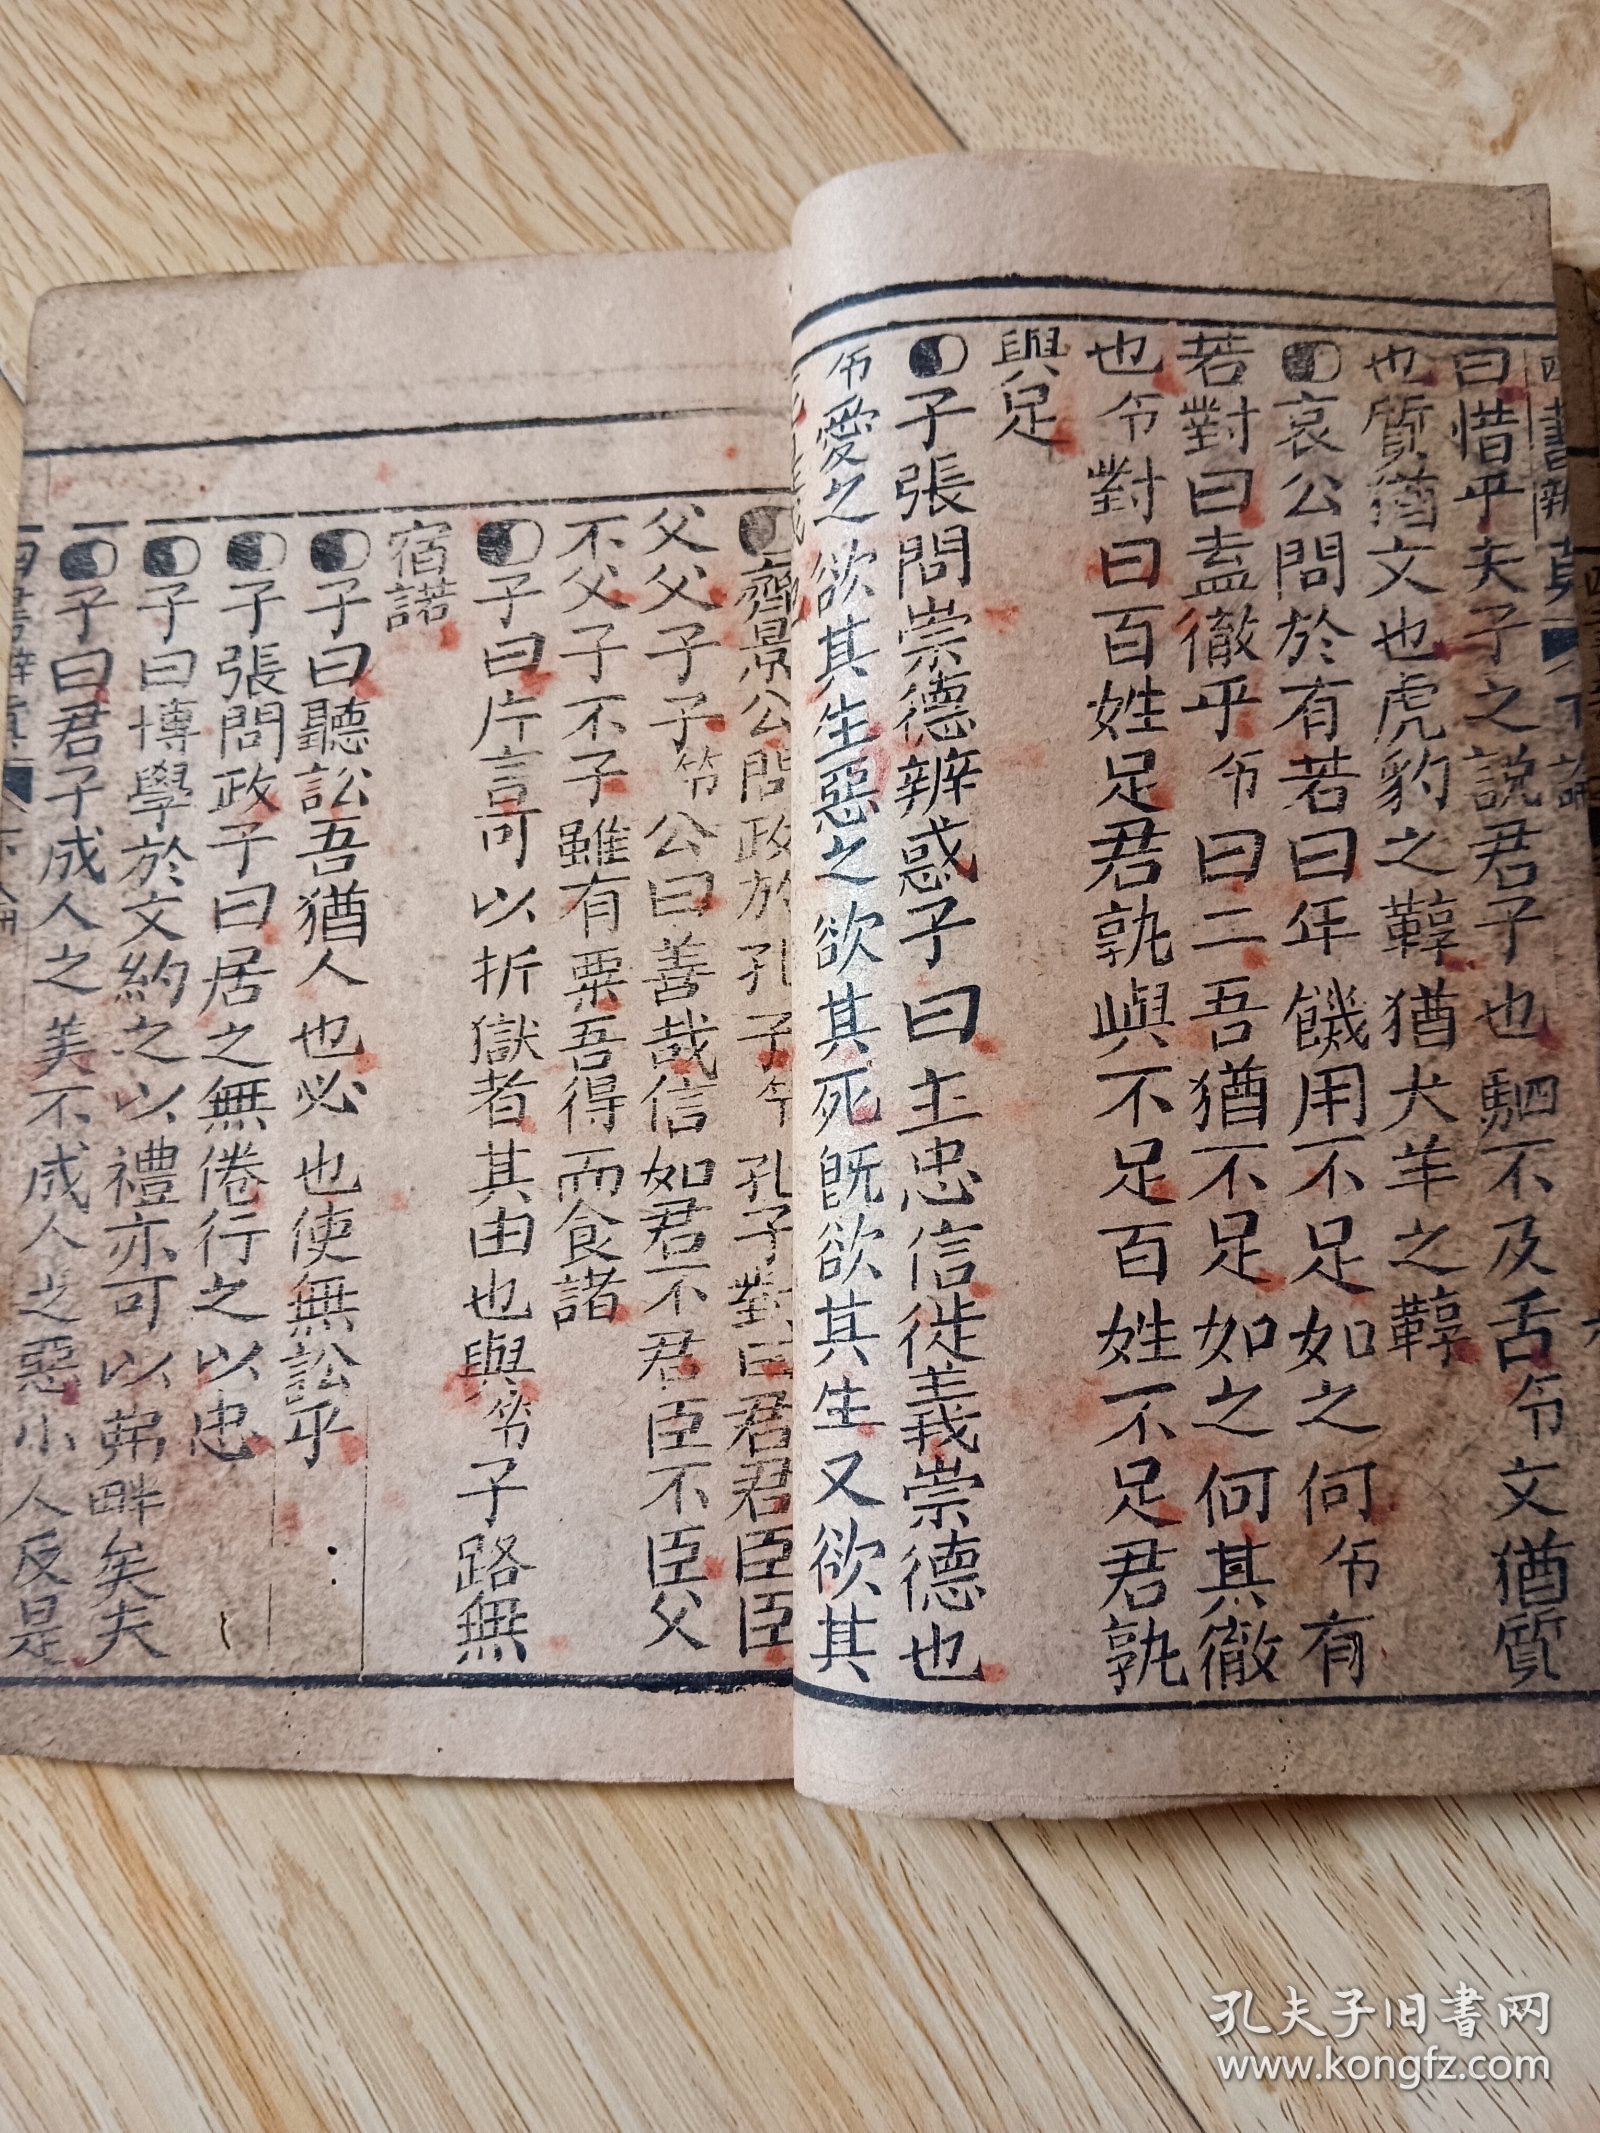 四書辨真 下論
曰惜乎夫子之說君子也駟不及舌 文猶質
也質猶文也虎豹之鞟猶犬羊之鞟
哀公問於有若曰年饑用不足如之何 有
若對曰盍徹乎 曰二吾猶不足如之何其徹
也 對曰百姓足君孰與不足百姓不足君孰
與足
子張問崇德辨惑子曰主忠信徙義崇德也
愛之欲其生惡之欲其死既欲其生又欲其
齊景公問政於孔子 孔子對曰君君臣臣
父父子子 公曰善哉信如君不君臣不臣父
不父子不子雖有粟吾得而食諸
子曰片言可以折獄者其由也與 子路無
宿諾
子曰聽訟吾猶人也必也使無訟乎
子張問政子曰居之無倦行之以忠
子曰博學於文約之以禮亦可以弗畔矣夫
子曰君子成人之美不成人之惡小人反是
孔夫子旧书网
www.kongfz.com